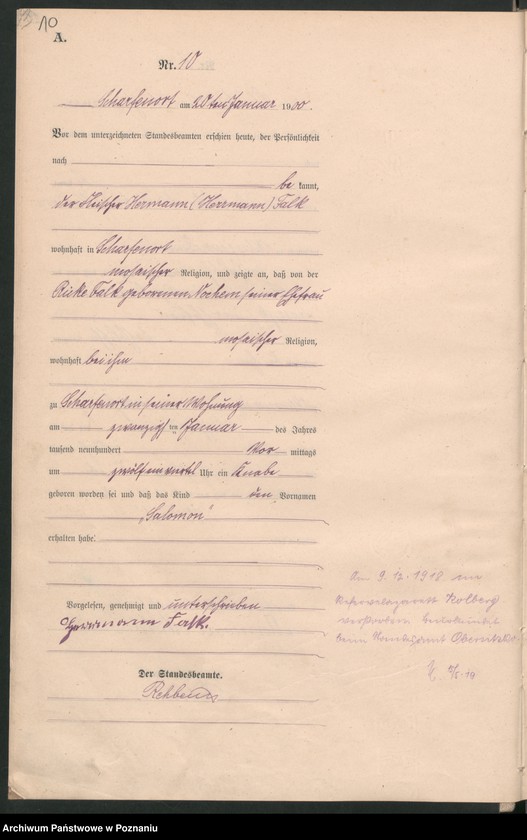 10
A.
Nr. 10
Scharfenort am 20ten Januar 1900.
Vor dem unterzeichneten Standesbeamten erschien heute, der Persönlichkeit
nach
be kannt,
der Fleischer Hermann (Herrmann) Falk
wohnhaft in Scharfenort
mosaischer Religion, und zeigte an, daß von der
Rieke Falk geborenen Nochem seiner Ehefrau
mosaischer Religion,
wohnhaft bei ihm
zu Scharfenort in seiner Wohnung
am zwanzigsten Januar des Jahres
tausend neunhundert Vor mittags
um zwölfeinviertel Uhr ein Knabe
geboren worden sei und daß das Kind den Vornamen
„Salomon“
erhalten habe.
Vorgelesen, genehmigt und unterschrieben
Herrmann Falk.
Der Standesbeamte.
Am 9.12.1918 im
Reservelazarett Kolberg
verstorben beurkundet
beim Standesamt Obersitzko
Archiwum Państwowe w Poznaniu